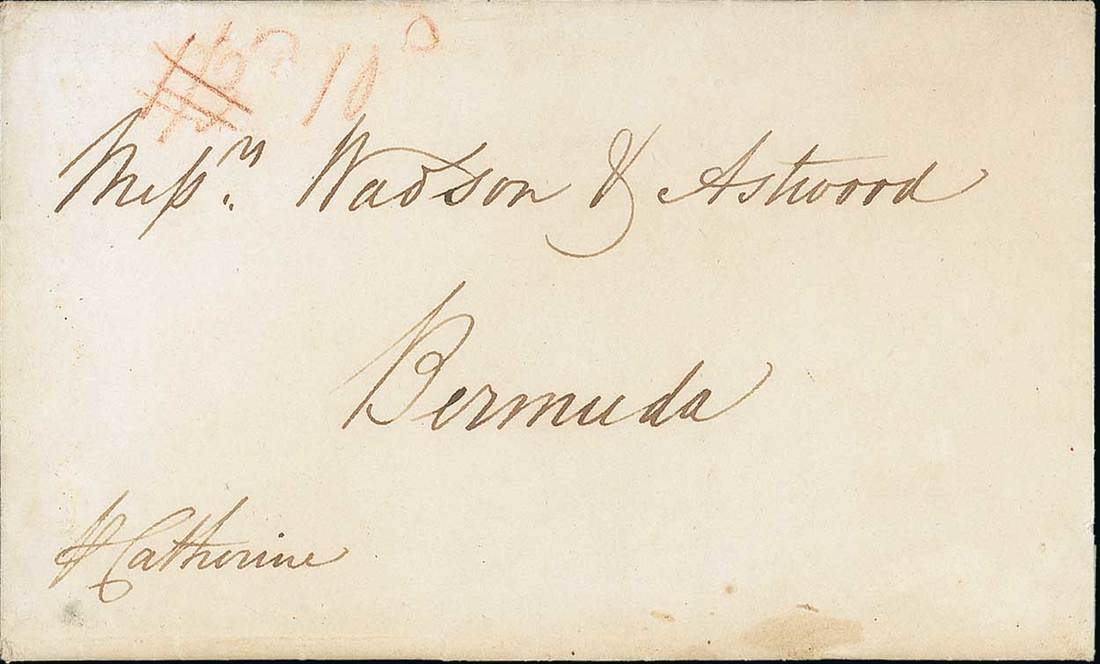 10 D
Messrs. Wadson & Astwood
Bermuda
Catherine